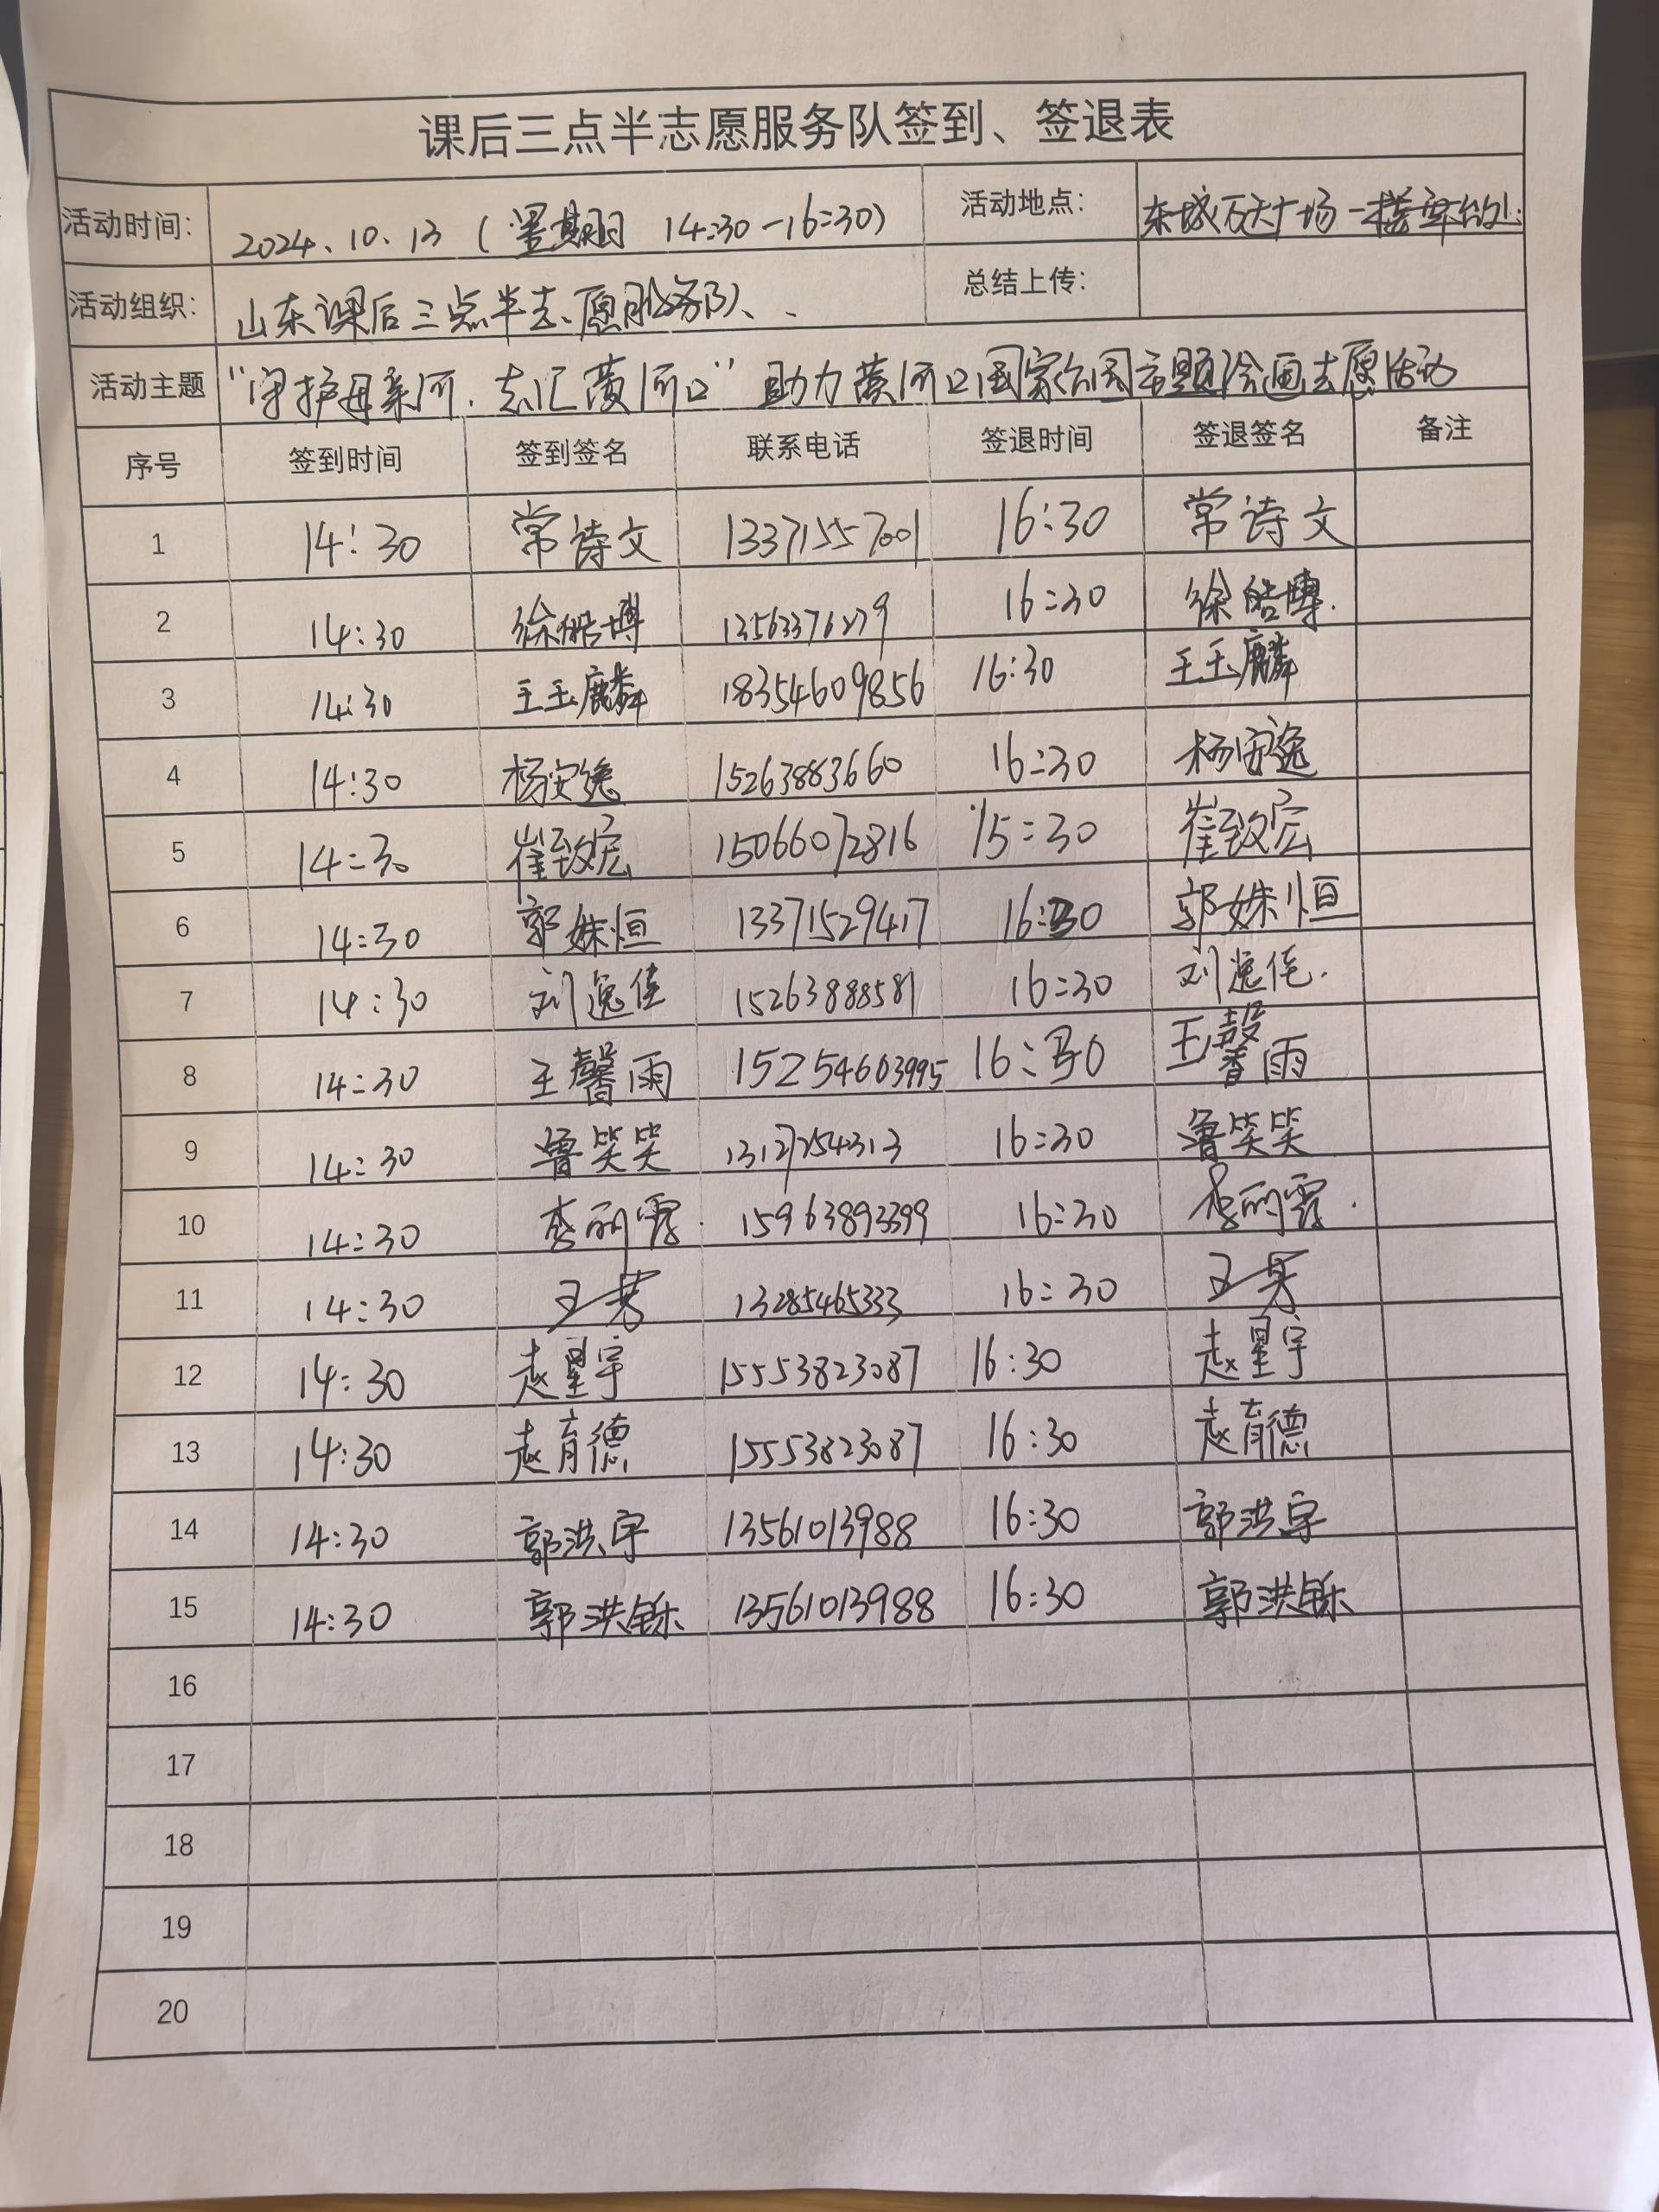 课后三点半志愿服务队签到、签退表
活动时间： 2024.10.13（星期日 14:30-16:30） 活动地点： 东城万达广场一楼舞台处
活动组织： 山东课后三点半志愿服务队 总结上传：
活动主题 “守护母亲河.志汇黄河口”助力黄河口国家公园主题绘画志愿活动
序号 签到时间 签到签名 联系电话 签退时间 签退签名 备注
1 14:30 常诗文 13371557001 16:30 常诗文
2 14:30 徐皓博 13563376279 16:30 徐皓博.
3 14:30 王玉麟 18354609856 16:30 王玉麟
4 14:30 杨安逸 15263883660 16:30 杨安逸
5 14:30 崔致宏 15066072816 15:30 崔致宏
6 14:30 郭姝恒 13371529417 16:30 郭姝恒
7 14:30 刘逸佳 15263888581 16:30 刘逸佳.
8 14:30 王馨雨 15254603995 16:30 王馨雨
9 14:30 鲁笑笑 13127254313 16:30 鲁笑笑
10 14:30 李丽霞. 15963893399 16:30 李丽霞.
11 14:30 13285465333 16:30
12 14:30 赵星宇 15553823087 16:30 赵星宇
13 14:30 赵育德 15553823087 16:30 赵育德
14 14:30 郭洪宇 13561013988 16:30 郭洪宇
15 14:30 郭洪铄 13561013988 16:30 郭洪铄
16
17
18
19
20